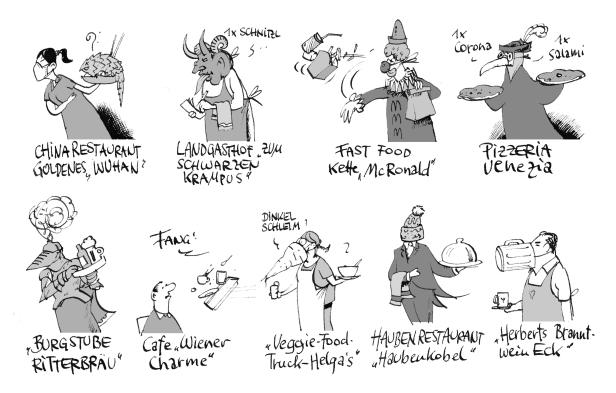 ?
CHINARESTAURANT
GOLDENES „WUHAN"
1x SCHNITZL
LANDGASTHOF „ZUM
SCHWARZEN
KRAMPUS"
FAST FOOD
Kette „McRonald"
1x
Corona
1x
Salami
PIZZERIA
Venezia
„BURGSTUBE
RITTERBRÄU"
FANG!
Cafe „Wiener
Charme"
DINKEL
SCHLEIM!
?
„Veggie-Food-
Truck-Helga's"
HAUBENRESTAURANT
„Haubenkobel"
„Herberts Brannt-
wein Eck"